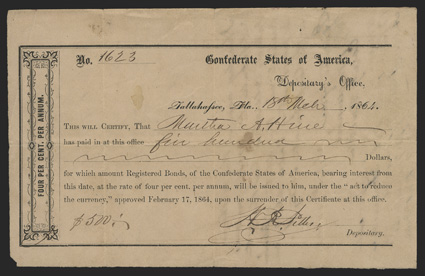 FOUR PER CENT. PER ANNUM.
No. 1623
Confederate States of America,
Depositary's Office,
Tallahassee, Fla. 18th Mch, 1864.
THIS WILL CERTIFY, That Martha A. Hine
has paid in at this office five hundred
Dollars,
for which amount Registered Bonds, of the Confederate States of America, bearing interest from
this date, at the rate of four per cent. per annum, will be issued to him, under the "act to reduce
the currency," approved February 17, 1864, upon the surrender of this Certificate at this office.
$500.
Depositary.